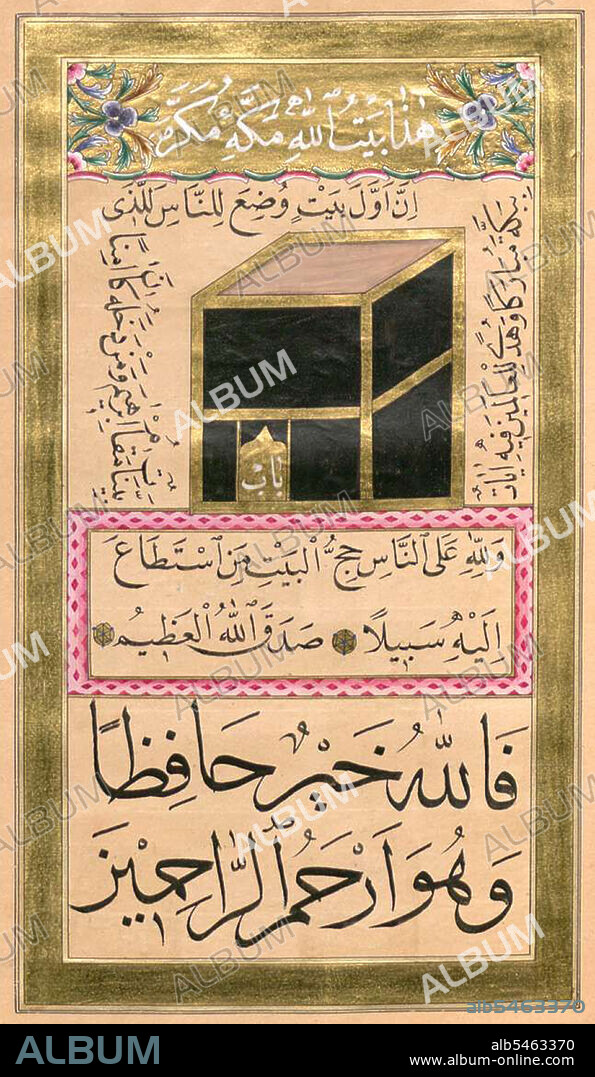 هٰذَا بَيْتُ اللّٰهِ مَكَّةَ مُكَرَّمَ
اِنَّ اَوَّلَ بَيْتٍ وُضِعَ لِلنَّاسِ لَلَّذى
بِبَكَّةَ مُبَارَكًا وَهُدًى لِلْعَالَمِينَ فِيهِ اٰيَاتٌ
بَيِّنَاتٌ مَقَامُ اِبْرٰهِيمَ وَمَنْ دَخَلَهُ كَانَ اٰمِنًا
بَابْ
وَلِلّٰهِ عَلَى النَّاسِ حِجُّ الْبَيْتِ مَنِ اسْتَطَاعَ
اِلَيْهِ سَبِيلًا صَدَقَ اللّٰهُ الْعَظِيمُ
فَاللّٰهُ خَيْرٌ حَافِظًا
وَهُوَ اَرْحَمُ الرَّاحِمِينَ
alb5463370
ALBUM
alb5463370
www.album-online.com